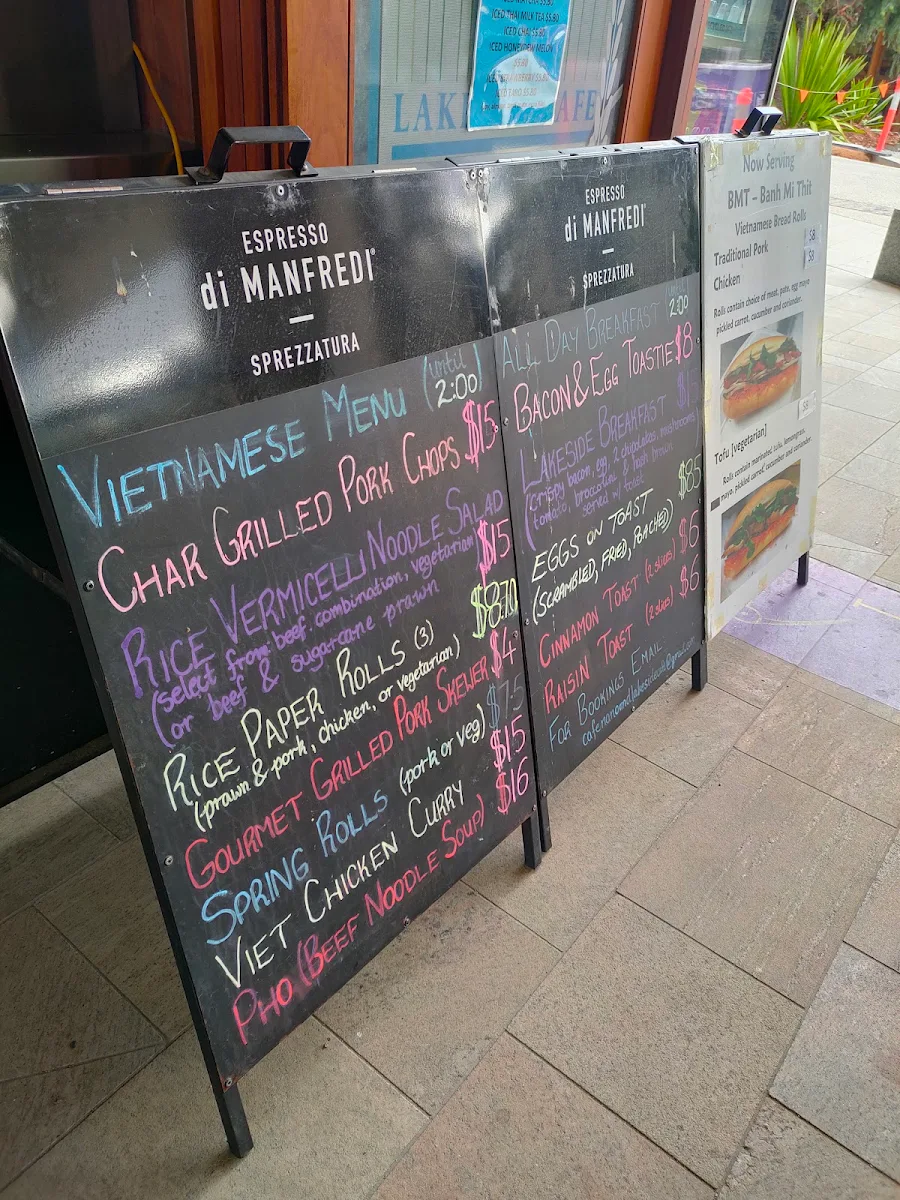 ICED THAI MILK TEA $5.80
ICED CHAI $5.80
ICED HONEYDEW MELON
$5.80
LAKE CAFE
ESPRESSO
di MANFREDI
SPREZZATURA
VIETNAMESE MENU (until 2:00)
CHAR GRILLED PORK CHOPS $15
RICE VERMICELLI NOODLE SALAD
(select from beef combination, vegetarian $15
(or beef & sugarcane prawn
RICE PAPER ROLLS (3) $8.70
(prawn & pork, chicken, or vegetarian)
GOURMET GRILLED PORK SKEWER $4
SPRING ROLLS (pork or veg)
VIET CHICKEN CURRY $15
PHO (BEEF NOODLE SOUP) $16
ESPRESSO
di MANFREDI
SPREZZATURA
ALL DAY BREAKFAST until 2:00
BACON & EGG TOASTIE $8
LAKESIDE BREAKFAST
(crispy bacon, egg, 2 chipolatas, mushrooms)
(tomato, broccolini & hash brown
served w/ toast
EGGS ON TOAST
(SCRAMBLED, FRIED, POACHED)
CINNAMON TOAST (2 slices) $6
RAISIN TOAST (2 slices) $6
FOR BOOKINGS EMAIL
Now Serving
BMT – Banh Mi Thit
Vietnamese Bread Rolls
Traditional Pork $8
Chicken $8
Rolls contain choice of meat, pate, egg mayo
pickled carrot, cucumber and coriander.
Tofu [vegetarian] $8
Rolls contain marinated tofu, lemongrass,
mayo, pickled carrot, cucumber and coriander.